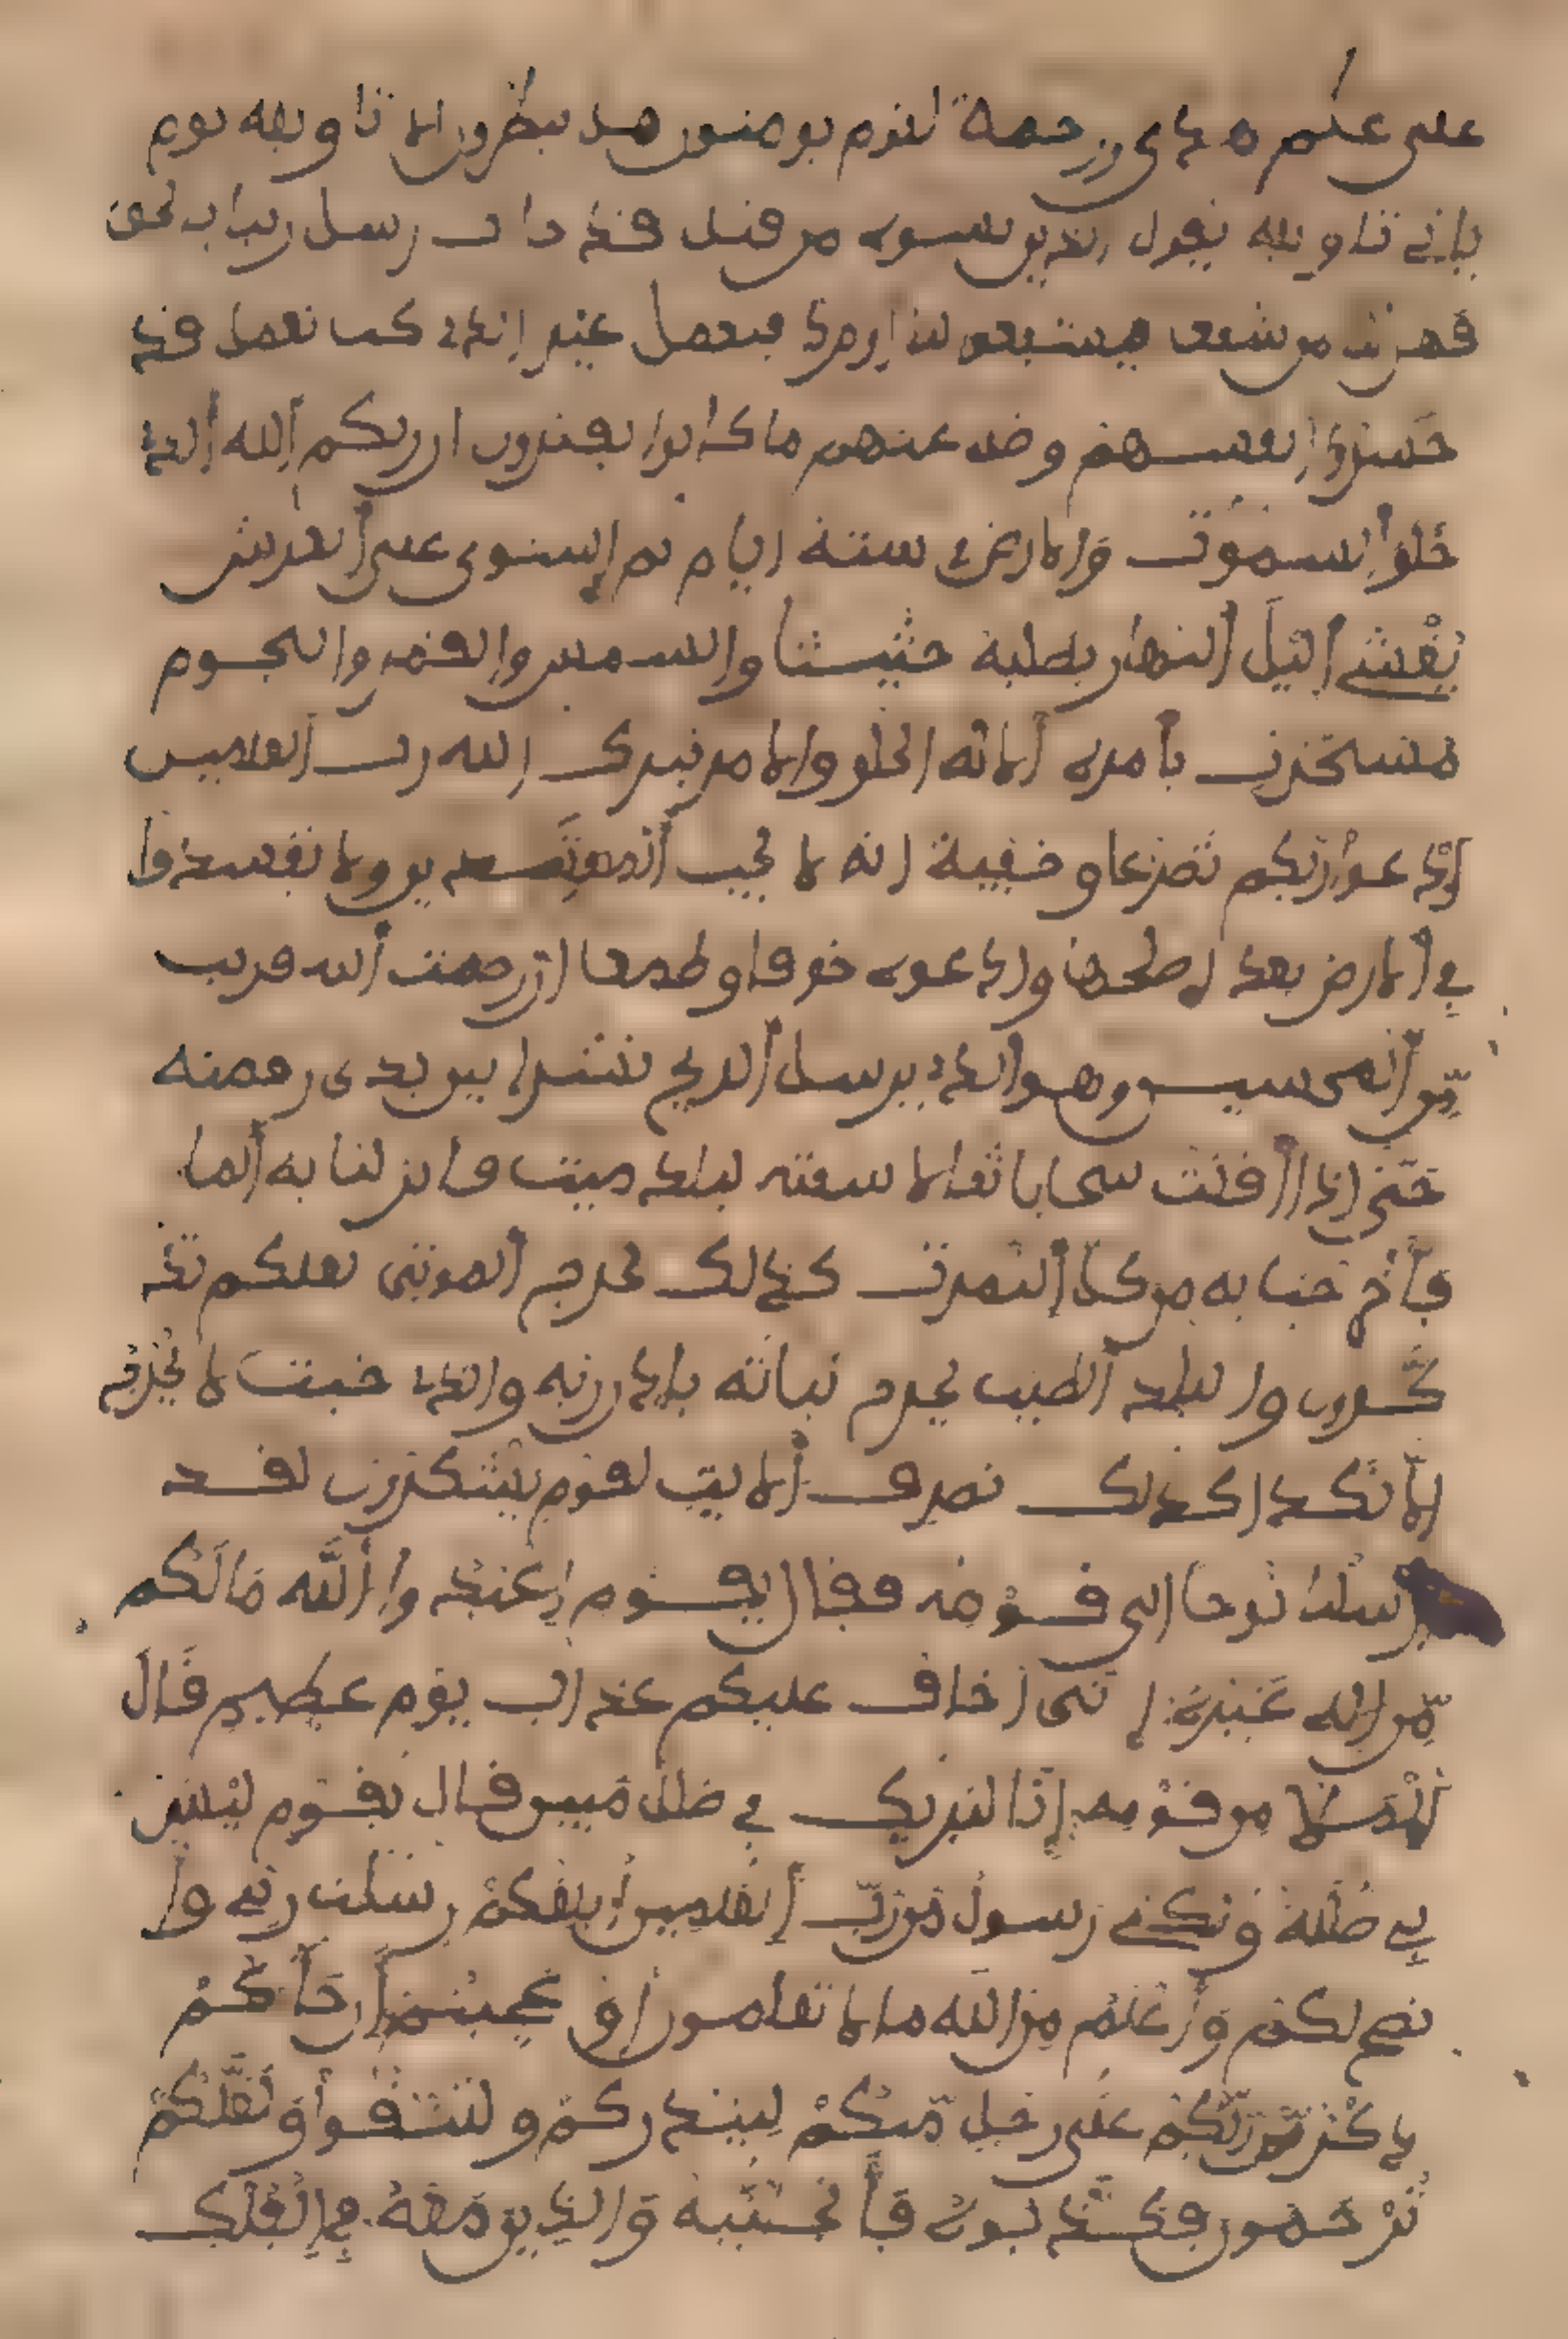 على علم هدى ورحمة لقوم يومنون هل ينظرون الا تاويله يوم
ياتي تاويله يقول الذين نسوه من قبل قد جات رسل ربنا بالحق
فهل لنا من شفعا فيشفعوا لنا او نرد فنعمل غير الذي كنا نعمل قد
خسروا انفسهم وضل عنهم ما كانوا يفترون ان ربكم الله الذي
خلق السموت والارض في ستة ايام ثم استوى على العرش
يغشي اليل النهار يطلبه حثيثا والشمس والقمر والنجوم
مسخرت بأمره ألا له الخلق والامر تبرك الله رب العلمين
ادعوا ربكم تضرعا وخفية انه لا يحب المعتدين ولا تفسدوا
في الارض بعد اصلحها وادعوه خوفا وطمعا ان رحمت الله قريب
مّن المحسنين وهو الذي يرسل الريح نشرا بين يدى رحمته
حتى اذا أقلت سحابا ثقالا سقنه لبلد ميت فانزلنا به الما
فأخرجنا به من كل الثمرت كذلك نخرج الموتى لعلكم تذ
كّرون والبلد الطيب يخرج نباته باذن ربه والذي خبث لا يخرج
الا نكدا كذلك نصرف الايت لقوم يشكرون لقد
ارسلنا نوحا الى قومه فقال يقوم اعبدوا الله ما لكم
مّن اله غيره إني أخاف عليكم عذاب يوم عظيم قال
الملأ من قومه إنا لنريك في ضلل مبين قال يقوم ليس
بي ضللة ولكني رسول من رّب العلمين أبلغكم رسلت ربي وا
نصح لكم وأعلم من الله ما لا تعلمون أو عجبتم أن جأكم
ذكر مّن رّبّكم على رجل مّنكم لينذركم ولتتقوا ولعلّكم
ترحمون فكذّبوه فأنجينه والذين معه في الفلك